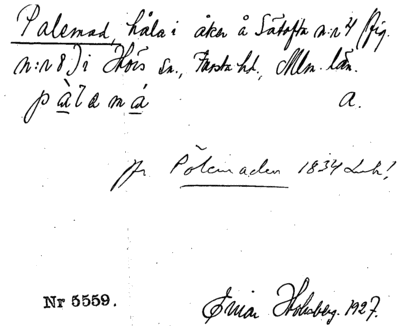 Palemad, håla i åker å Sätofta n:r 4 (fig.
n:r 8) i Hörs sn., Frosta hd., Mlm. län.
pàlamá a.
jfr Pölemaden 1834 Lsk!
Nr 5559. Einar Holmberg. 1927.